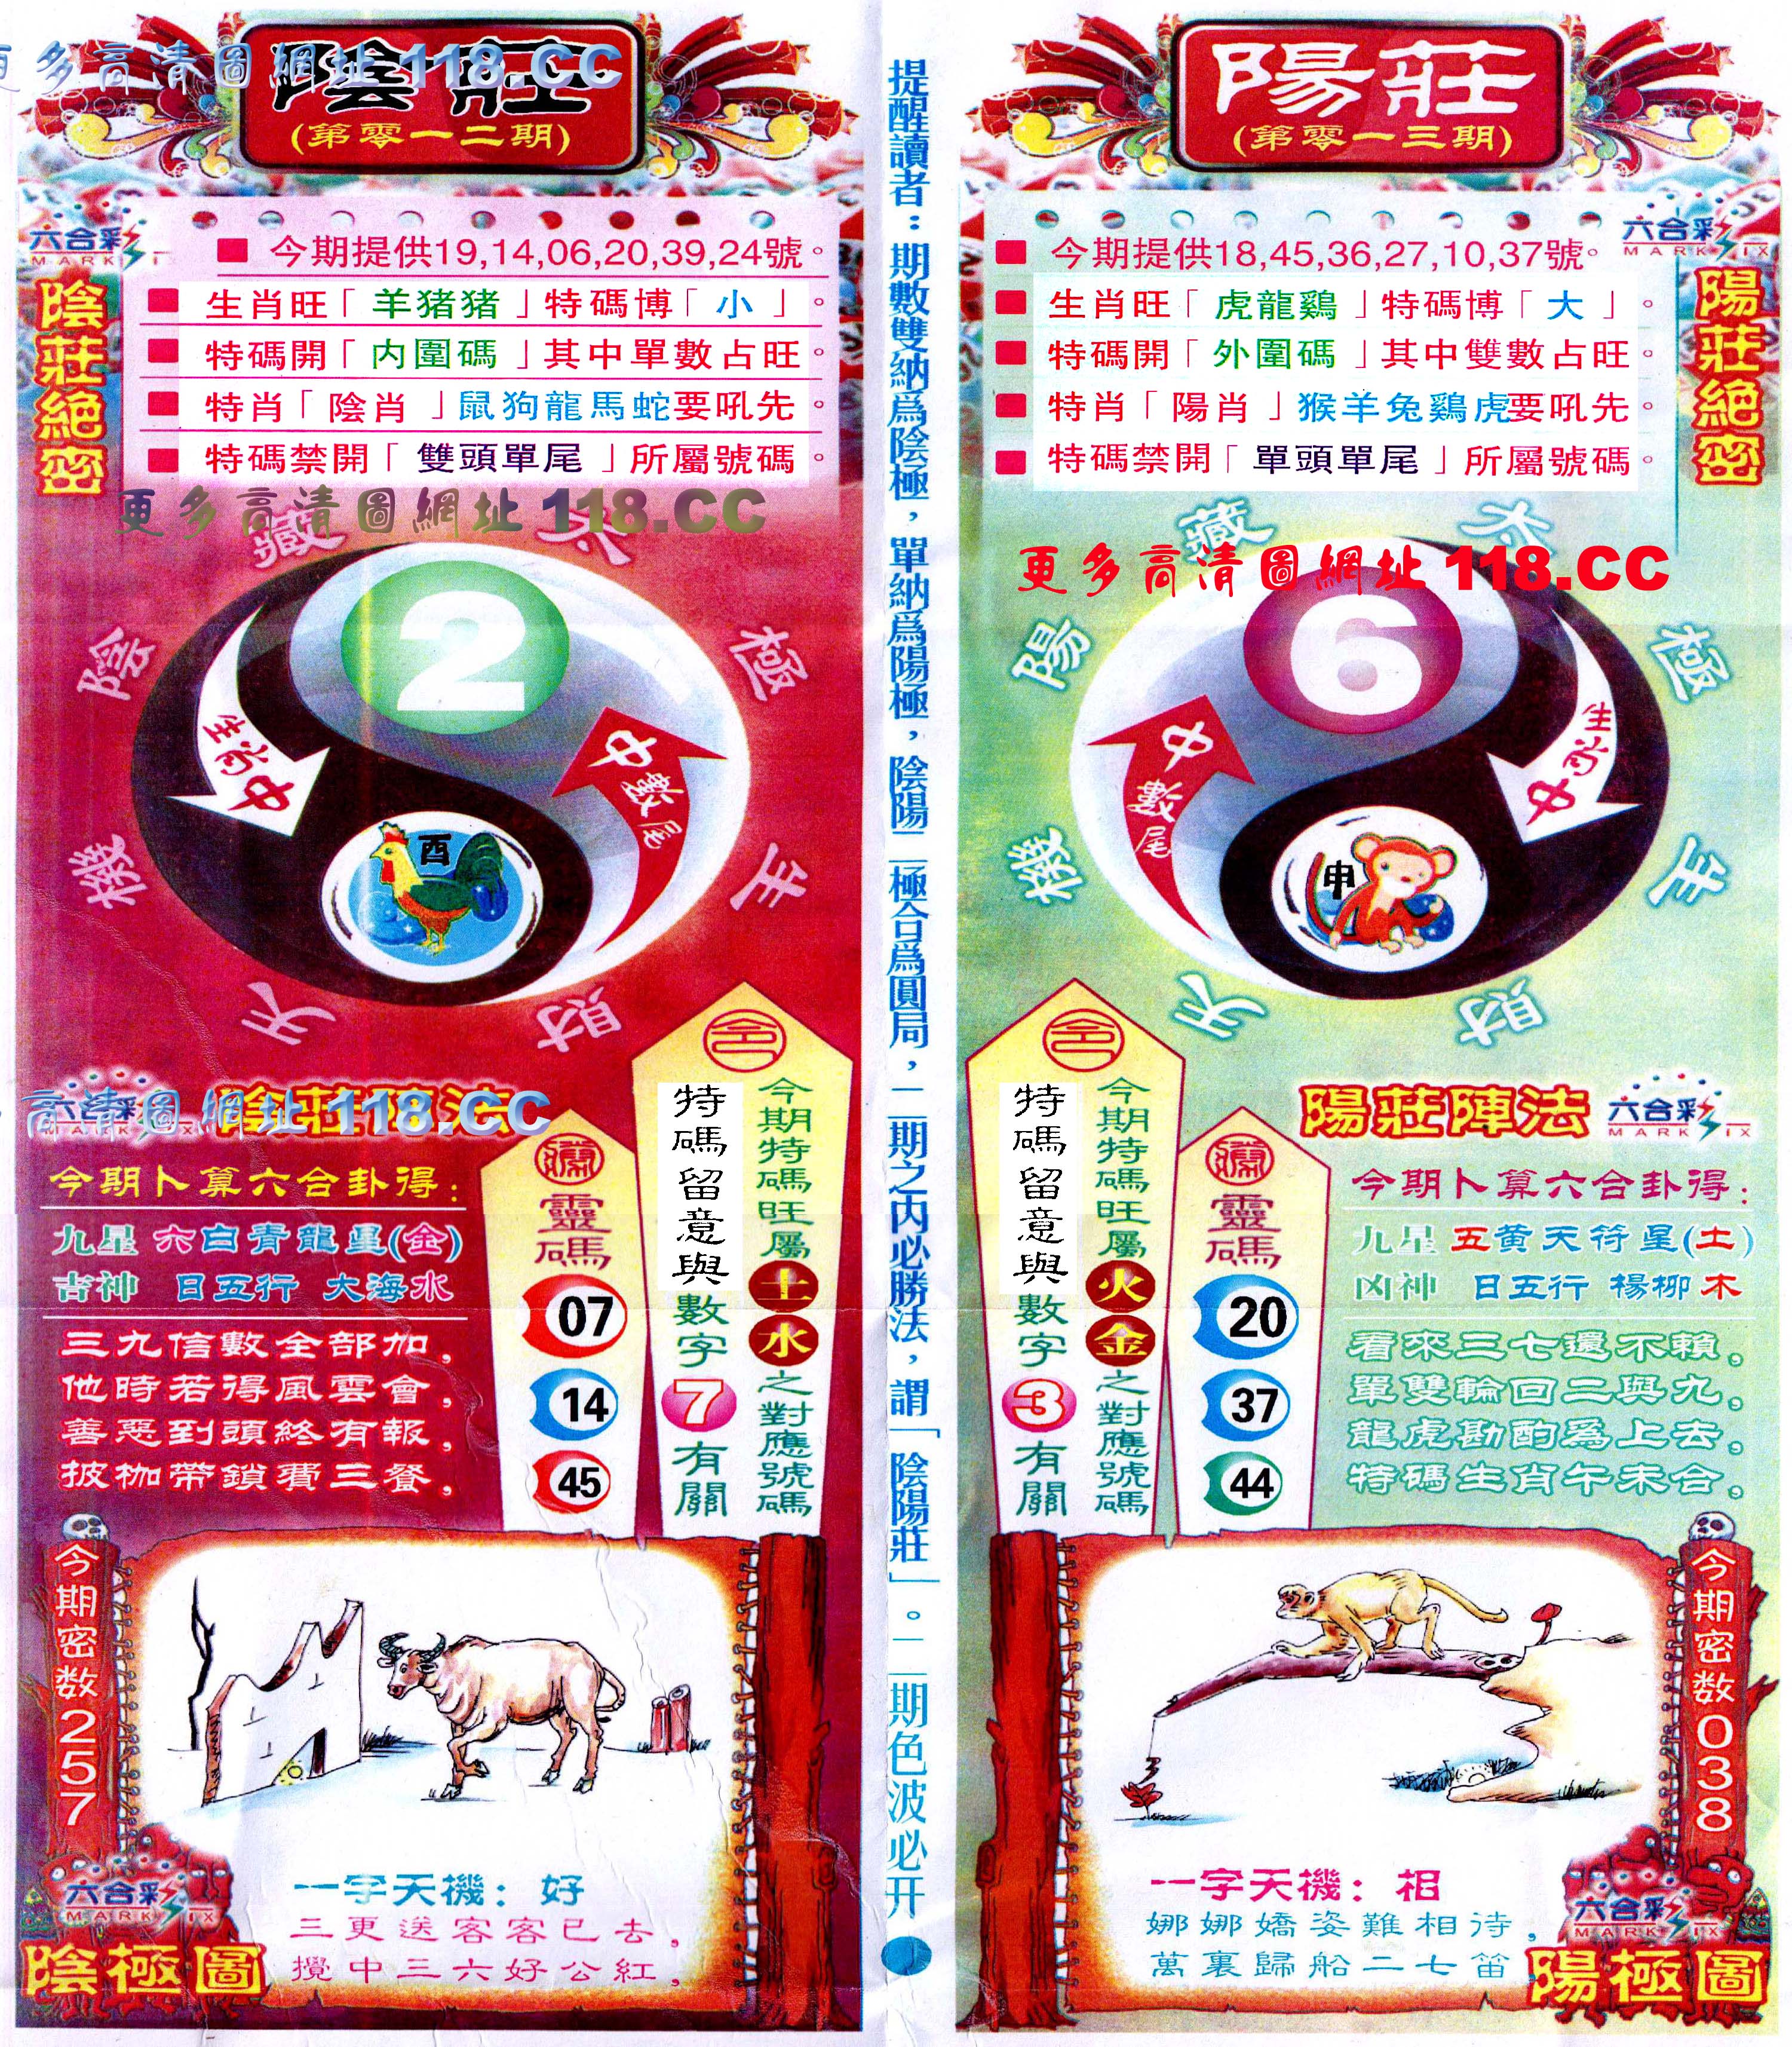 更多高清圖網址 118.CC
陰莊
(第零一二期)
六合彩
MARK SIX
陰莊絕密
■ 今期提供19,14,06,20,39,24號。
■ 生肖旺「羊猪猪」特碼博「小」。
■ 特碼開「内圍碼」其中單數占旺。
■ 特肖「陰肖」鼠狗龍馬蛇要吼先。
■ 特碼禁開「雙頭單尾」所屬號碼。
更多高清圖網址 118.CC
太極生財
天機陰藏
2
生肖中
中數尾
酉
六合彩
MARK SIX
陰莊陣法
高清圖網址 118.CC
今期卜算六合卦得:
九星 六白青龍星(金)
吉神 日五行 大海水
三九信數全部加,
他時若得風雲會,
善惡到頭終有報,
披枷帶鎖費三餐,
靈碼
07
14
45
今期特碼旺屬土水之對應號碼
特碼留意與數字7有關
今期密数257
一字天機: 好
三更送客客已去,
攪中三六好公紅,
六合彩
MARK SIX
陰極圖
提醒讀者:期數雙納爲陰極,單納爲陽極,陰陽二極合爲圓局,二期之内必勝法,謂「陰陽莊」。二期色波必开
陽莊
(第零一三期)
六合彩
MARK SIX
陽莊絕密
■ 今期提供18,45,36,27,10,37號。
■ 生肖旺「虎龍鷄」特碼博「大」。
■ 特碼開「外圍碼」其中雙數占旺。
■ 特肖「陽肖」猴羊兔鷄虎要吼先。
■ 特碼禁開「單頭單尾」所屬號碼。
更多高清圖網址 118.CC
太極生財
天機陽藏
6
生肖中
中數尾
申
陽莊陣法
六合彩
MARK SIX
今期卜算六合卦得:
九星 五黄天符星(土)
凶神 日五行 楊柳木
看來三七還不賴。
單雙輪回二與九。
龍虎勘酌爲上去。
特碼生肖午未合。
今期特碼旺屬火金之對應號碼
特碼留意與數字3有關
靈碼
20
37
44
今期密数038
一字天機: 相
娜娜嬌姿難相待,
萬裏歸船二七笛
六合彩
MARK SIX
陽極圖